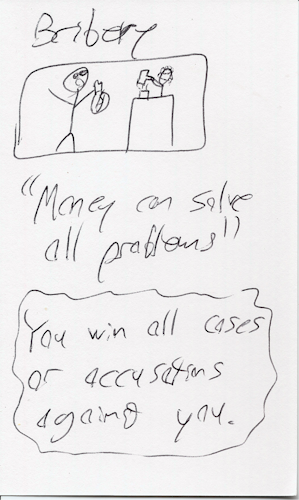 Bribery
"Money can solve
all problems"
You win all cases
or accusations
against you.